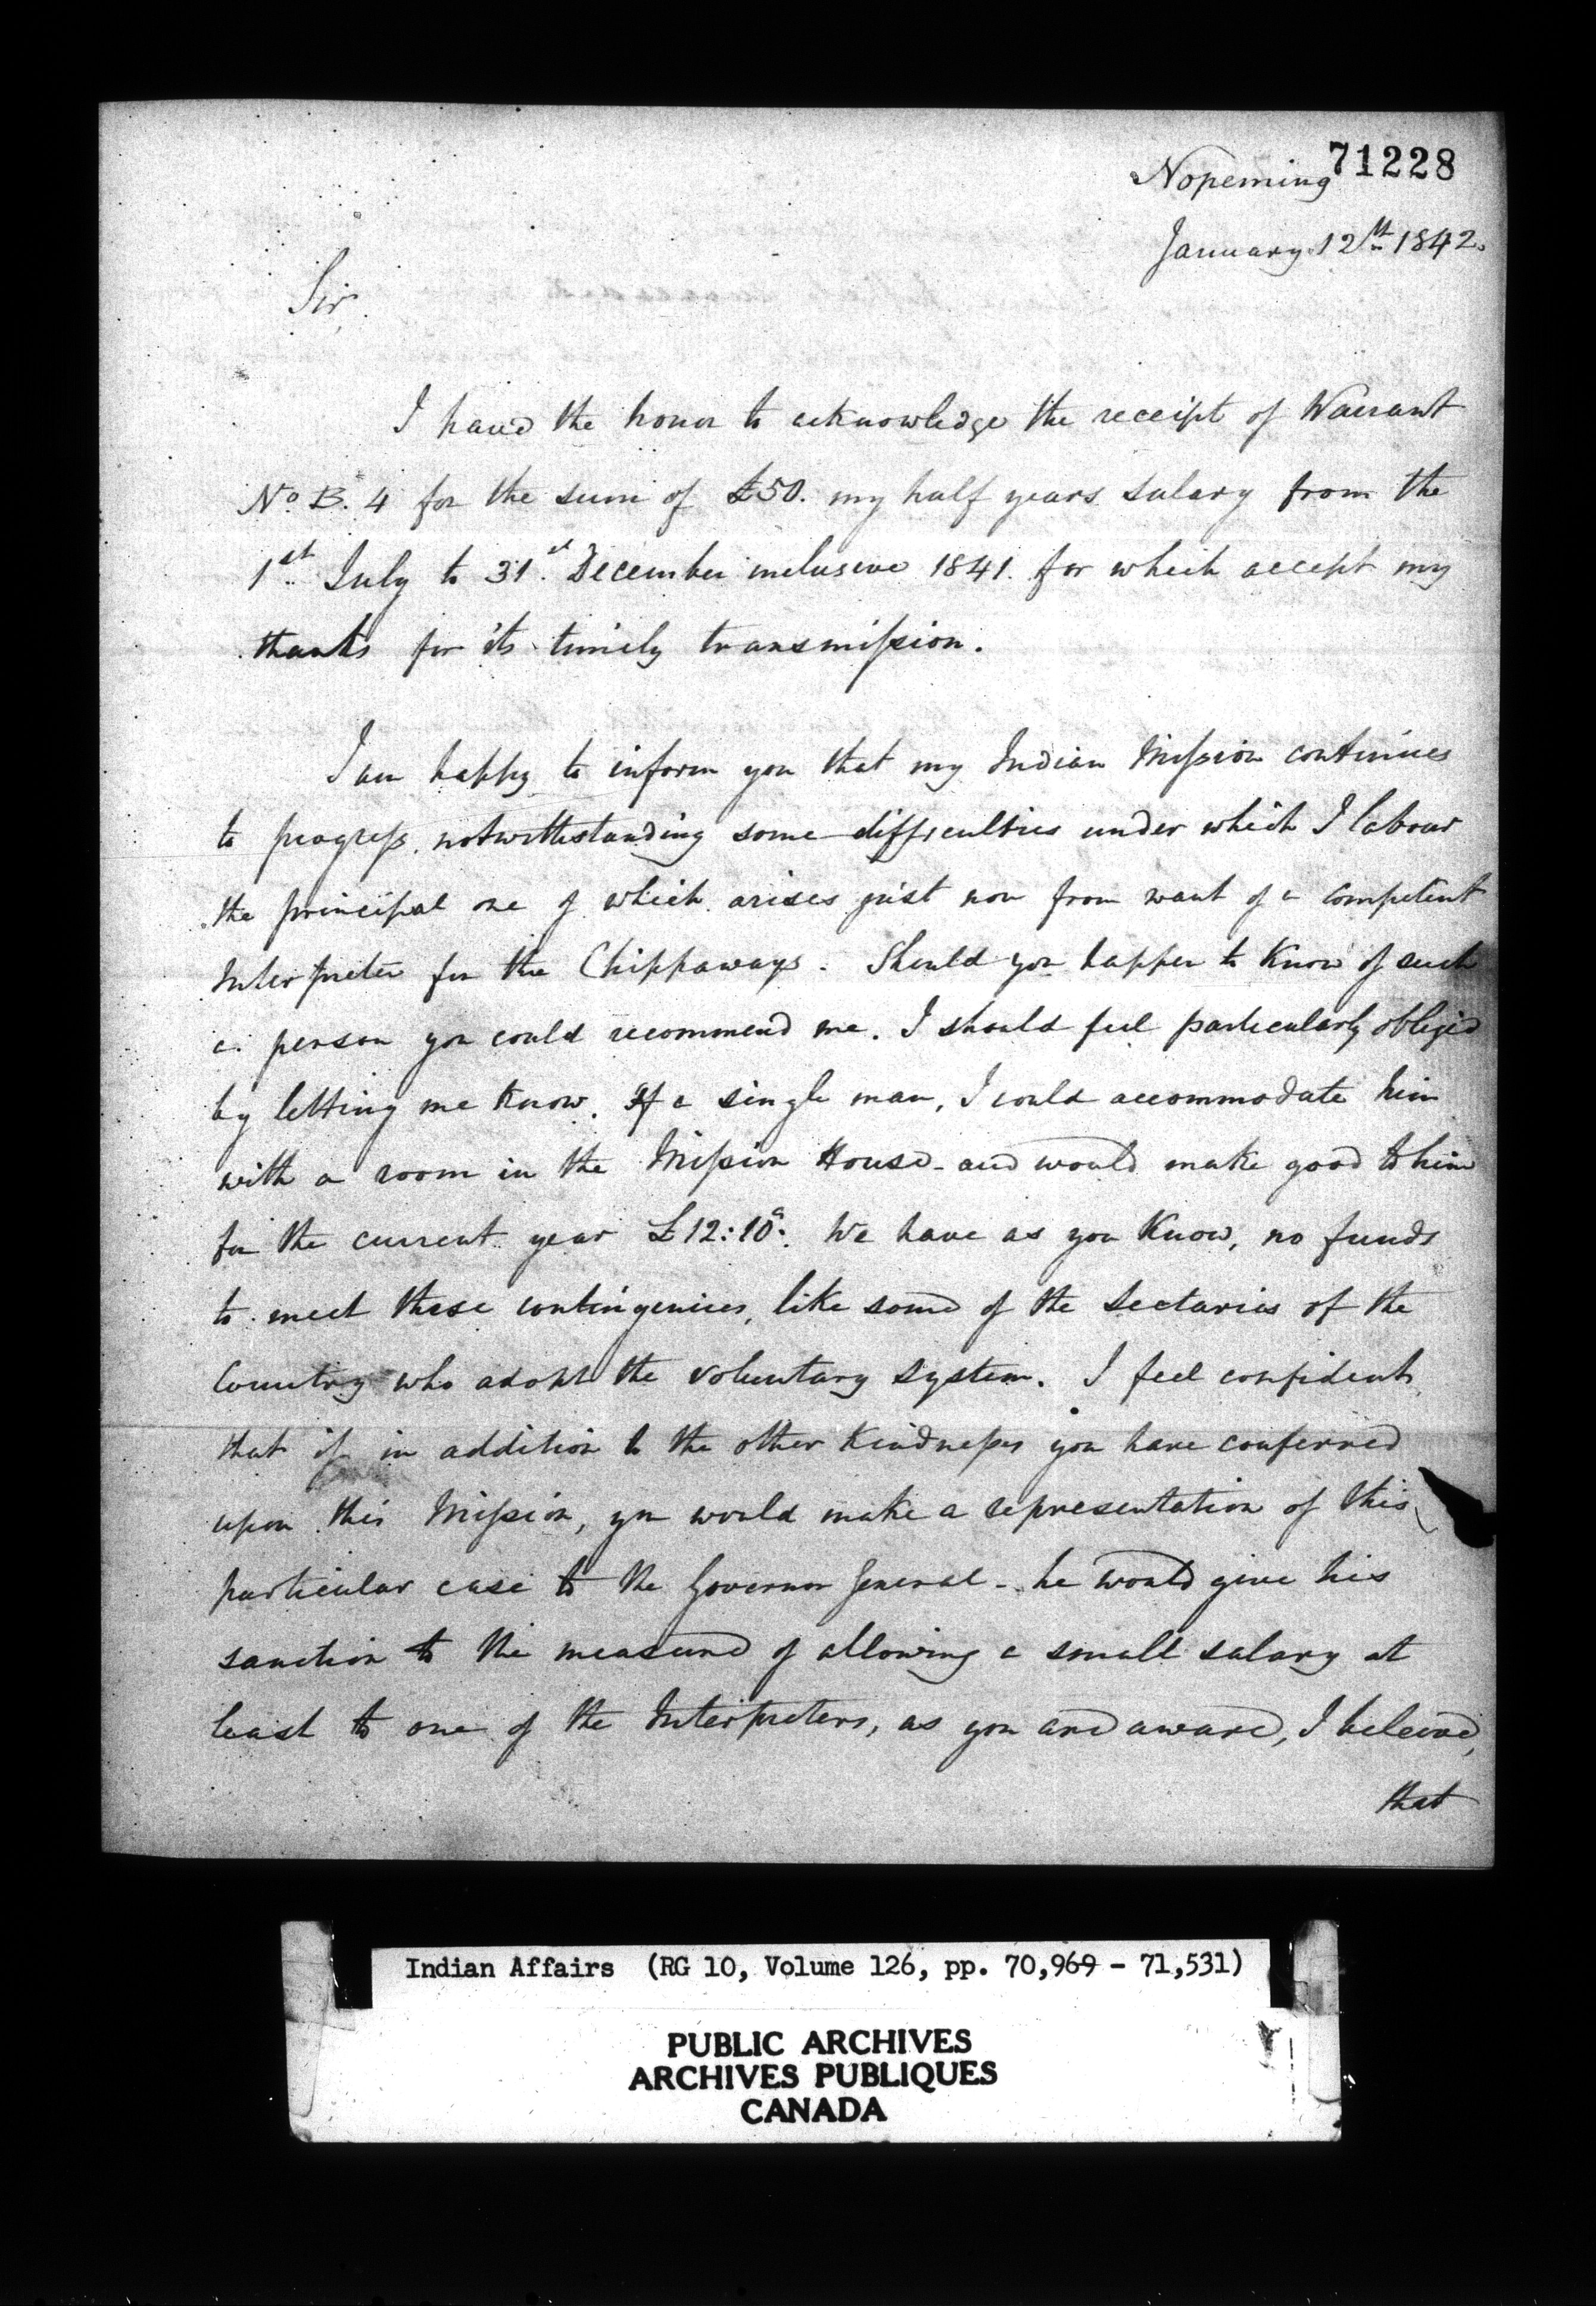 71228
Nopeming
January 12th 1842.
Sir,
I have the honor to acknowledge the receipt of Warrant
No. B. 4 for the sum of £50. my half years salary from the
1st July to 31st December inclusive 1841. for which accept my
thanks for its timely transmission.
I am happy to inform you that my Indian Mission continues
to progress, notwithstanding some difficulties under which I labour
the principal one of which arises just now from want of a competent
Interpreter for the Chippaways. Should you happen to know of such
a person you could recommend me. I should feel particularly obliged
by letting me know. If a single man, I could accommodate him
with a room in the Mission House - and would make good to him
for the current year £12:10s. We have as you know, no funds
to meet these contingencies, like some of the Sectaries of the
Country who adopt the voluntary system. I feel confident
that if in addition to the other kindnesses you have conferred
upon this Mission, you would make a representation of this
particular case to the Governor General - he would give his
sanction to the measure of allowing a small salary at
least to one of the Interpreters, as you are aware, I beleive,
that
Indian Affairs (RG 10, Volume 126, pp. 70,969 - 71,531)
PUBLIC ARCHIVES
ARCHIVES PUBLIQUES
CANADA